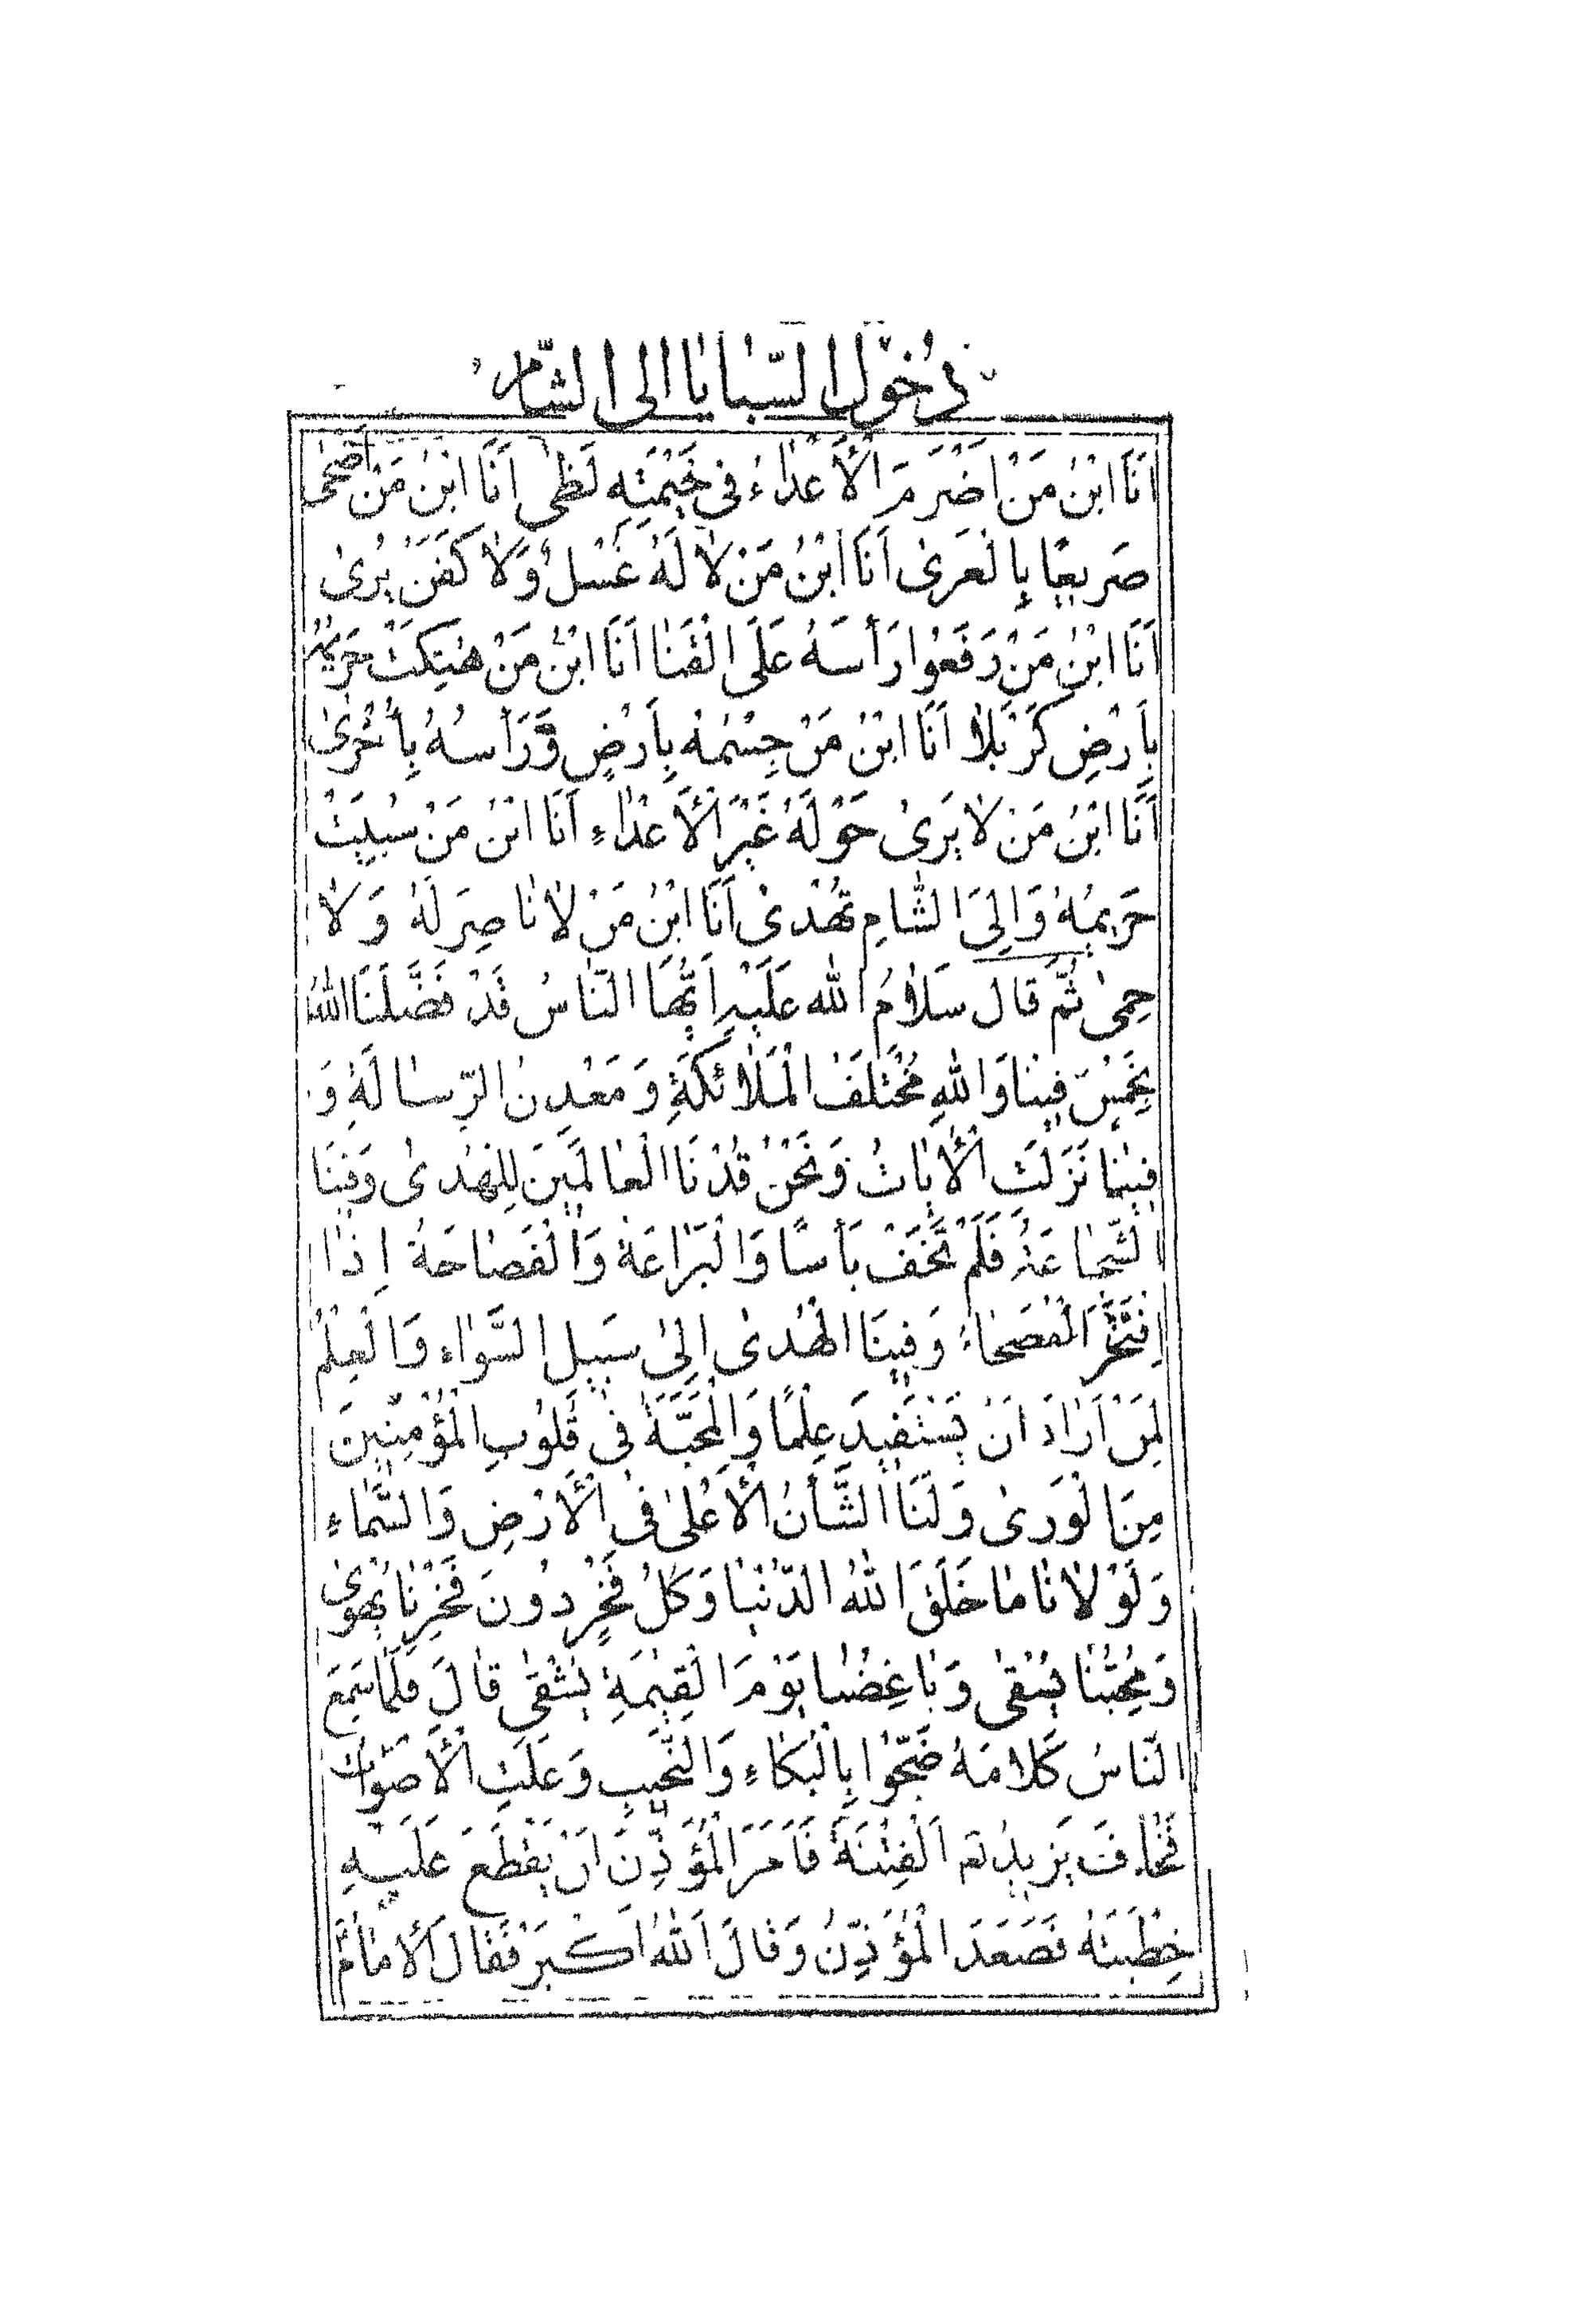 دُخُولُ السَّبَايَا اِلَى الشَّام
اَنَا ابْنُ مَنْ اَضْرَمَ الْأَعْدَاءُ فِى خَيْمَتِهِ لَظٰى اَنَا ابْنُ مَنْ اَضْحٰى
صَرِيعًا بِالْعَرىٰ اَنَا ابْنُ مَنْ لَا لَهُ غُسْلٌ وَلَا كَفَنٌ يُرىٰ
اَنَا ابْنُ مَنْ رَفَعُوا رَأْسَهُ عَلَى الْقَنَا اَنَا ابْنُ مَنْ هُتِكَتْ حَرِيمُهُ
بِأَرْضِ كَرْبَلَا اَنَا ابْنُ مَنْ جِسْمُهُ بِأَرْضٍ وَرَأْسُهُ بِأُخْرىٰ
اَنَا ابْنُ مَنْ لَا يَرىٰ حَوْلَهُ غَيْرَ الْأَعْدَاءِ اَنَا ابْنُ مَنْ سُبِيَتْ
حَرِيمُهُ وَاِلَى الشَّامِ تُهْدىٰ اَنَا ابْنُ مَنْ لَا نَاصِرَ لَهُ وَلَا
حِمىٰ ثُمَّ قَالَ سَلَامُ اللهِ عَلَيْهِ اَيُّهَا النَّاسُ قَدْ فَضَّلَنَا اللهُ
بِخَمْسٍ فِينَا وَاللهِ مُخْتَلَفُ الْمَلَائِكَةِ وَمَعْدِنُ الرِّسَالَةِ وَ
فِينَا نَزَلَتِ الْأٰيَاتُ وَنَحْنُ قُدْنَا الْعَالَمِينَ لِلْهُدىٰ وَفِينَا
الشَّجَاعَةُ فَلَمْ نَخَفْ بَأْسًا وَالْبَرَاعَةُ وَالْفَصَاحَةُ اِذَا
اِفْتَخَرَ الْفُصَحَاءُ وَفِينَا الْهُدىٰ اِلىٰ سَبِيلِ السَّوَاءِ وَالْعِلْمُ
لِمَنْ اَرَادَ اَنْ يَسْتَفِيدَ عِلْمًا وَالْمَحَبَّةُ فِى قُلُوبِ الْمُؤْمِنِينَ
مِنَ الْوَرىٰ وَلَنَا الشَّأْنُ الْأَعْلىٰ فِى الْأَرْضِ وَالسَّمَاءِ
وَلَوْلَانَا مَا خَلَقَ اللهُ الدُّنْيَا وَكُلُّ فَخْرٍ دُونَ فَخْرِنَا يَهْوىٰ
وَمُحِبُّنَا يُسْقىٰ وَبَاغِضُنَا يَوْمَ الْقِيٰمَةِ يَشْقىٰ قَالَ فَلَمَّا سَمِعَ
النَّاسُ كَلَامَهُ ضَجُّوا بِالْبُكَاءِ وَالنَّحِيبِ وَعَلَتِ الْأَصْوَاتُ
فَخَافَ يَزِيدُ الْفِتْنَةَ فَأَمَرَ الْمُؤَذِّنَ اَنْ يَقْطَعَ عَلَيْهِ
خِطْبَتَهُ فَصَعَدَ الْمُؤَذِّنُ وَقَالَ اَللهُ اَكْبَرُ فَقَالَ الْأِمَامُ